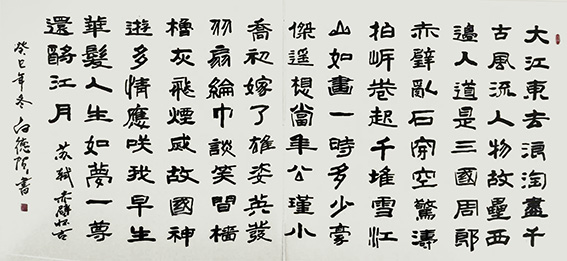 大江東去浪淘盡千
古風流人物故壘西
邊人道是三國周郎
赤壁亂石穿空驚濤
拍岸卷起千堆雪江
山如畫一時多少豪
傑遥想當年公瑾小
喬初嫁了雄姿英發
羽扇綸巾談笑間檣
櫓灰飛煙烕故國神
遊多情應咲我早生
華髮人生如夢一尊
還酹江月 蘇軾赤壁懷古
癸巳年冬 書